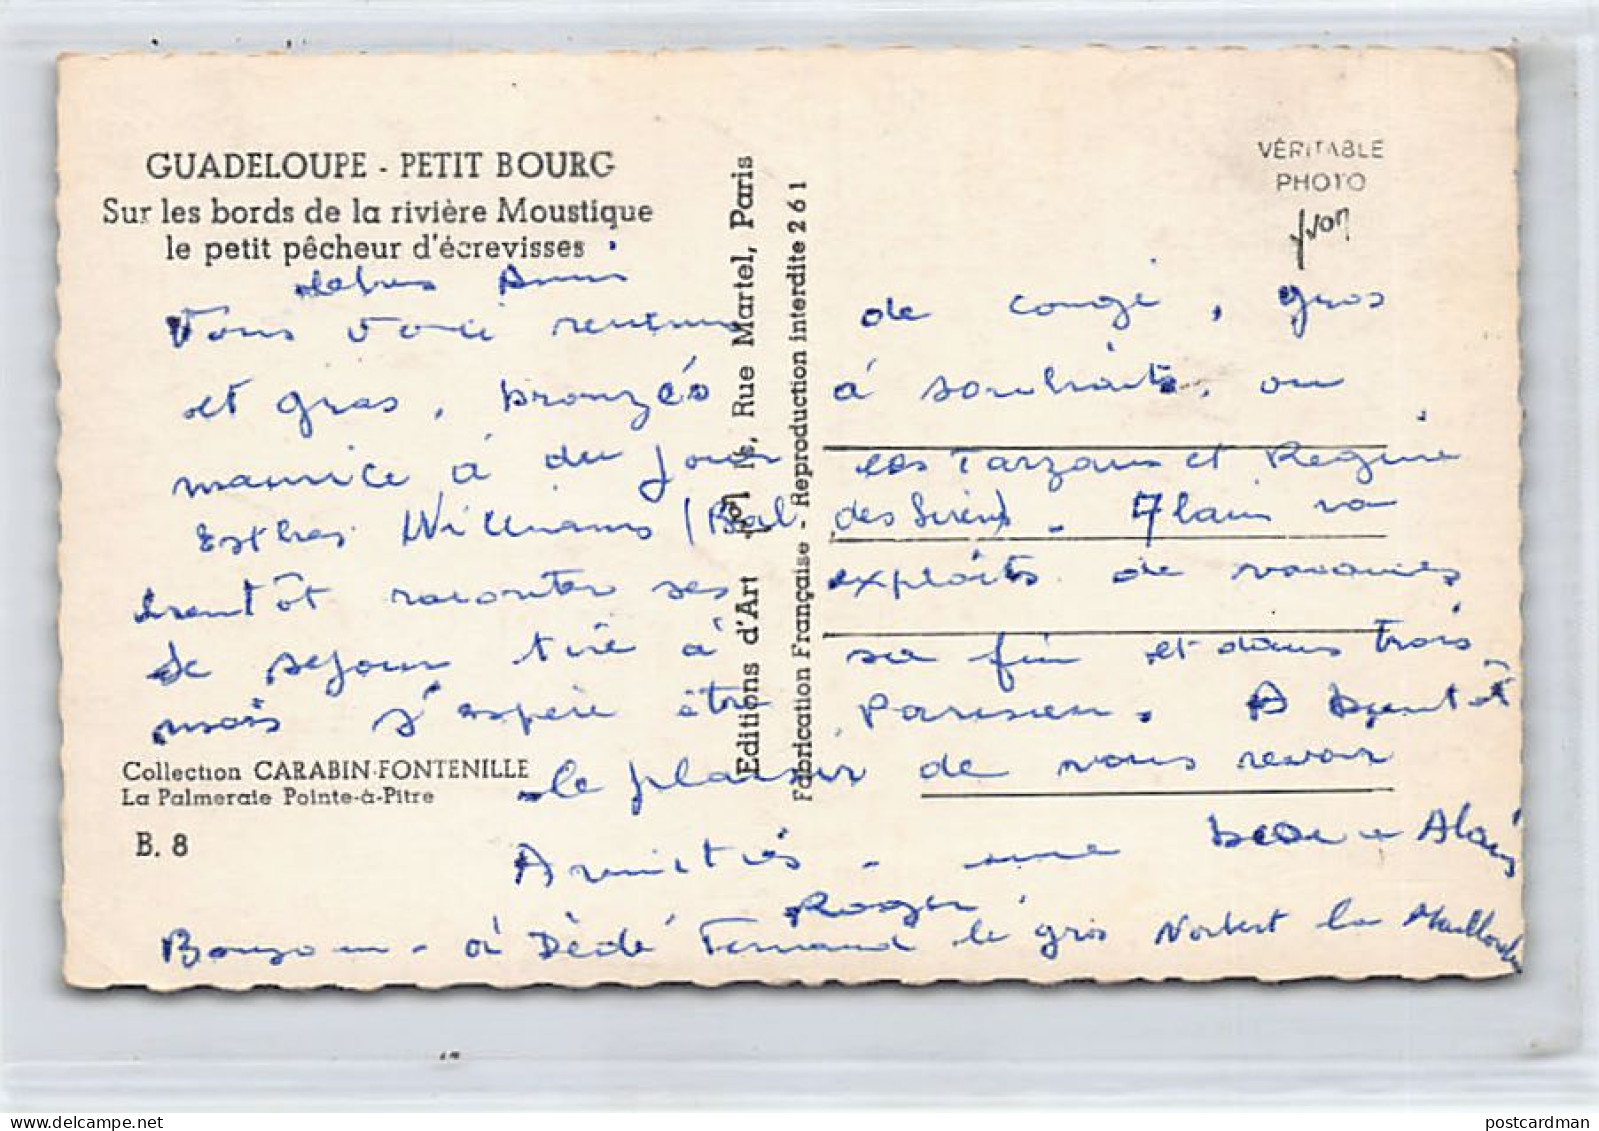 GUADELOUPE - PETIT BOURG
Sur les bords de la rivière Moustique
le petit pêcheur d'écrevisses
VÉRITABLE
PHOTO
yvon
Editions d'Art Yvon, Rue Martel, Paris
Fabrication Française - Reproduction interdite 261
Amis
de congé, gros
et gras, bronzés à souhaits, ou
maurice à du jouer les Tarzans et Regine
Esther Williams (Bal des Sirènes) - Alain va
bientôt raconter ses exploits de vacances
Le sejour tire à sa fin et dans trois
mois s'espère être Parisien. A bientôt
le plaisir de vous revoir
Amitiés -
Alain
Roger
Bonjour - à Dédé Fernand le gros Norbert
Collection CARABIN-FONTENILLE
La Palmeraie Pointe-à-Pitre
B. 8
postcardman